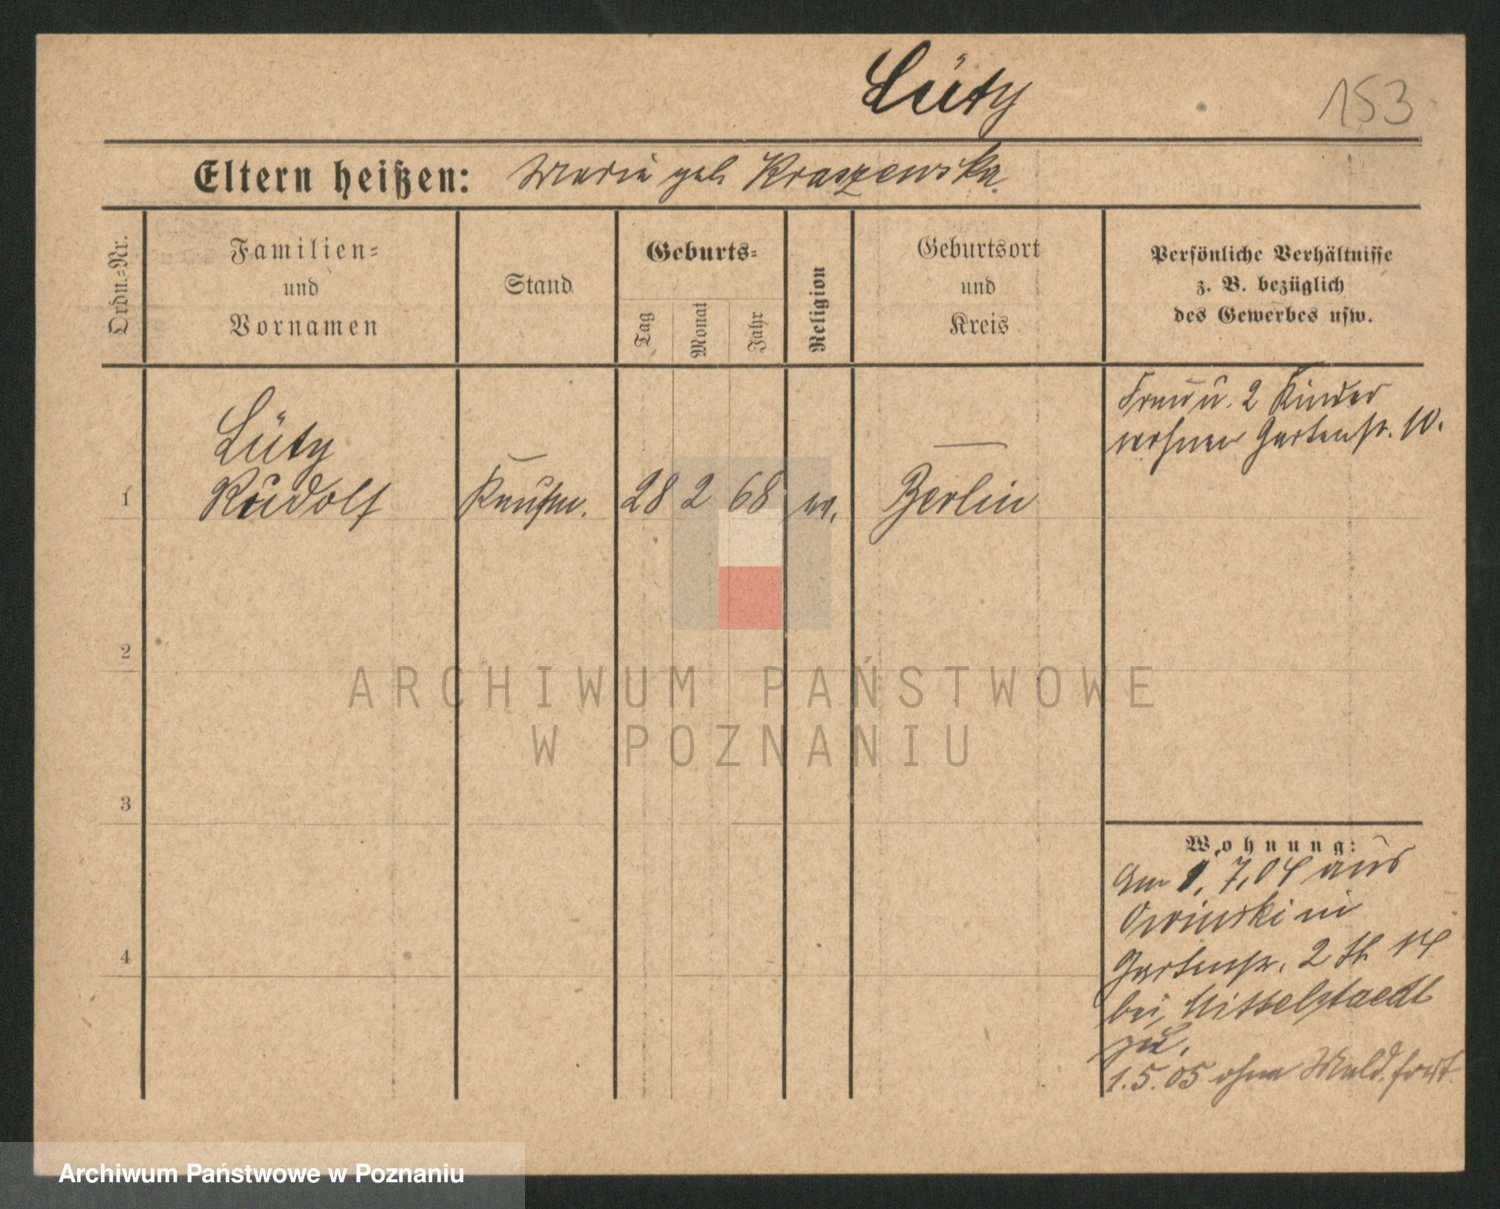 Lüty
153
Eltern heißen: Maria geb. Kraszewska
Ordn.-Nr.
Familien-
und
Vornamen
Stand
Geburts-
Tag
Monat
Jahr
Religion
Geburtsort
und
Kreis
Persönliche Verhältnisse
z. B. bezüglich
des Gewerbes usw.
Frau u. 2 Kinder
wohnen Gartenstr. 10.
Lüty
1 Rudolf Kaufm. 28 2 68 Berlin
2
3
4
Wohnung:
Am 1. 7. 04 aus
Owinski in
Gartenstr. 2 14
bei Mittelstaedt
zu.
1. 5. 05 ohne Meld. fort.
ARCHIWUM PAŃSTWOWE
W POZNANIU
Archiwum Państwowe w Poznaniu